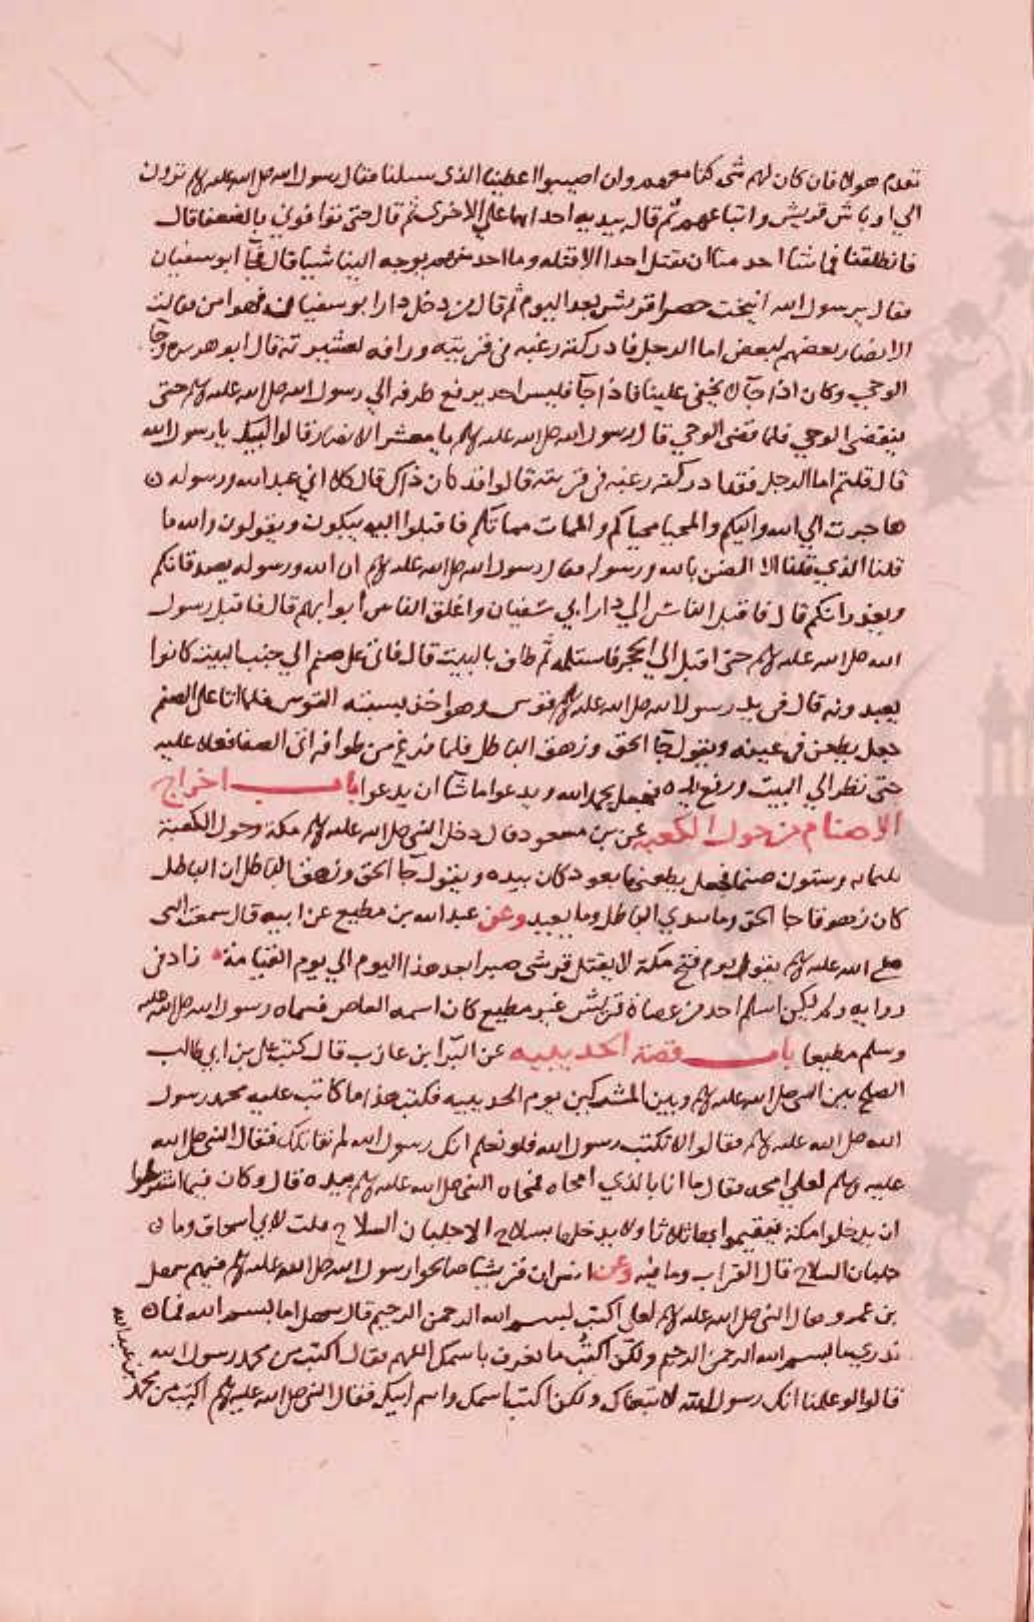 نقدم هولا فان كان لهم شي كنا معهم وان اصيبوا اعطينا الذي سيلنا فقال رسول الله صل الله عليه وسلم ترون
الي اوباش قريش واتباعهم ثم قال بيديه احداهما علي الاخري ثم قال حتى توافوني بالصفا قال
فانطلقنا فما شا احد منا ان يقتل احدا الا قتله وما احد منهم يوجه الينا شيا قال فجآ ابو سفيان
فقال يرسول الله ابيحت خضرا قريش بعد اليوم ثم قال من دخل دار ابو سفيان فهو امن فقالت
الانصار بعضهم لبعض اما الرجل فادركته رغبة في قريته ورافه لعشيرته قال ابو هريره وجا
الوحي وكان اذا جآ لا يخفى علينا فاذا جآ فليس احد يرفع طرفه الي رسول الله صل الله عليه وسلم حتى
ينقضي الوحي فلما قضى الوحي قال رسول الله صل الله عليه وسلم يا معشر الانصار قالوا لبيك يا رسول الله
قال قلتم اما الرجل فقد ادركته رغبة في قريته قالوا قد كان ذاك قال كلا اني عبد الله ورسوله
هاجرت الي الله واليكم والمحيا محياكم والممات مماتكم فاقبلوا اليه يبكون ويقولون والله ما
قلنا الذي قلنا الا الضن بالله ورسوله فقال رسول الله صل الله عليه وسلم ان الله ورسوله يصدقانكم
ويعذرانكم قال فاقبل الناس الي دار ابي سفيان واغلق الناس ابوابهم قال فاقبل رسول
الله صل الله عليه وسلم حتى اقبل الي الحجر فاستلمه ثم طاف بالبيت قال فاتى على صنم الي جنب البيت كانوا
يعبدونه قال في يد رسول الله صل الله عليه وسلم قوس وهو اخذ بسية القوس فلما اتا على الصنم
جعل يطعن في عينه ويقول جا الحق وزهق الباطل فلما فرغ من طوافه اتى الصفا فعلا عليه
حتى نظر الي البيت ورفع يده فجعل يحمد الله ويدعوا ما شآ ان يدعوا باب اخراج
الاصنام من حول الكعبه عن بن مسعود قال دخل النبي صل الله عليه وسلم مكة وحول الكعبة
ثلثمايه وستون صنما فجعل يطعنها بعود كان بيده ويقول جآ الحق وزهق الباطل ان الباطل
كان زهوقا جا الحق وما يبدي الباطل وما يعيد وعن عبد الله بن مطيع عن ابيه قال سمعت النبي
صلي الله عليه وسلم يقول يوم فتح مكة لا يقتل قرشي صبرا بعد هذا اليوم الي يوم القيامة زاد في
روايه ولم يكن اسلم احد من عصاة قريش غير مطيع كان اسمه العاص فسماه رسول الله صل الله عليه
وسلم مطيعا باب قصة الحديبيه عن البرآ ابن عازب قال كتب علي بن ابي طالب
الصلح بين النبي صل الله عليه وسلم وبين المشركين يوم الحديبيه فكتب هذا ما كاتب عليه محمد رسول
الله صل الله عليه وسلم فقالوا لا تكتب رسول الله فلو نعلم انك رسول الله لم نقاتلك فقال النبي صل الله
عليه وسلم لعلي امحه فقال ما انا بالذي امحاه فمحاه النبي صل الله عليه وسلم بيده قال وكان فيما اشترطوا
ان يدخلوا مكة فيقيموا بها ثلاثا ولا يدخلها بسلاح الا جلبان السلاح قلت لابي اسحاق وما
جلبان السلاح قال القراب وما فيه وعن انس ان قريشا صالحوا رسول الله صل الله عليه وسلم فيهم سهل
بن عمرو فقال النبي صل الله عليه وسلم لعلي اكتب بسم الله الرحمن الرحيم قال سهل اما بسم الله فما
ندري ما بسم الله الرحمن الرحيم ولكن اكتب ما نعرف باسمك اللهم فقال اكتب من محمد رسول الله
قالوا لو علمنا انك رسول الله لاتبعناك ولكن اكتب اسمك واسم ابيك فقال النبي صل الله عليه وسلم اكتب من محمد
بن عبد الله